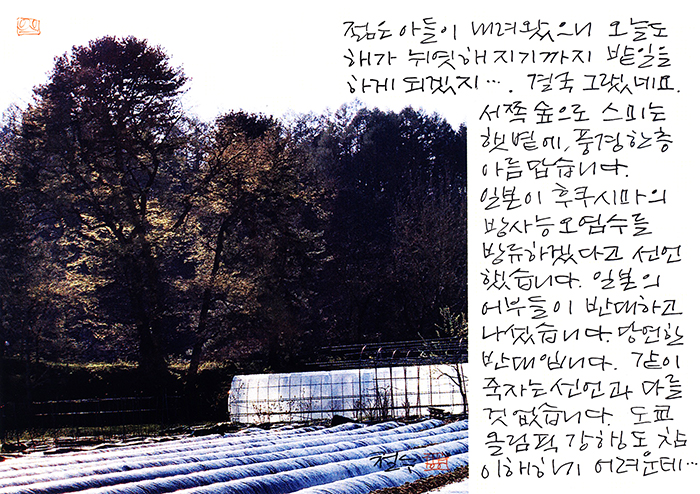 젊은 아들이 내려왔으니 오늘도
해가 뉘엿해지기까지 밭일을
하게 되겠지···. 결국 그랬네요.
서쪽 숲으로 스미는
햇볕에, 풍경한층
아름답습니다.
일본이 후쿠시마의
방사능오염수를
방류하겠다고 선언
했습니다. 일본의
어부들이 반대하고
나섰습니다. 당연한
반대입니다. 같이
죽자는 선언과 다를
것 없습니다. 도쿄
올림픽 강행도 참
이해하기 어려운데···
철수